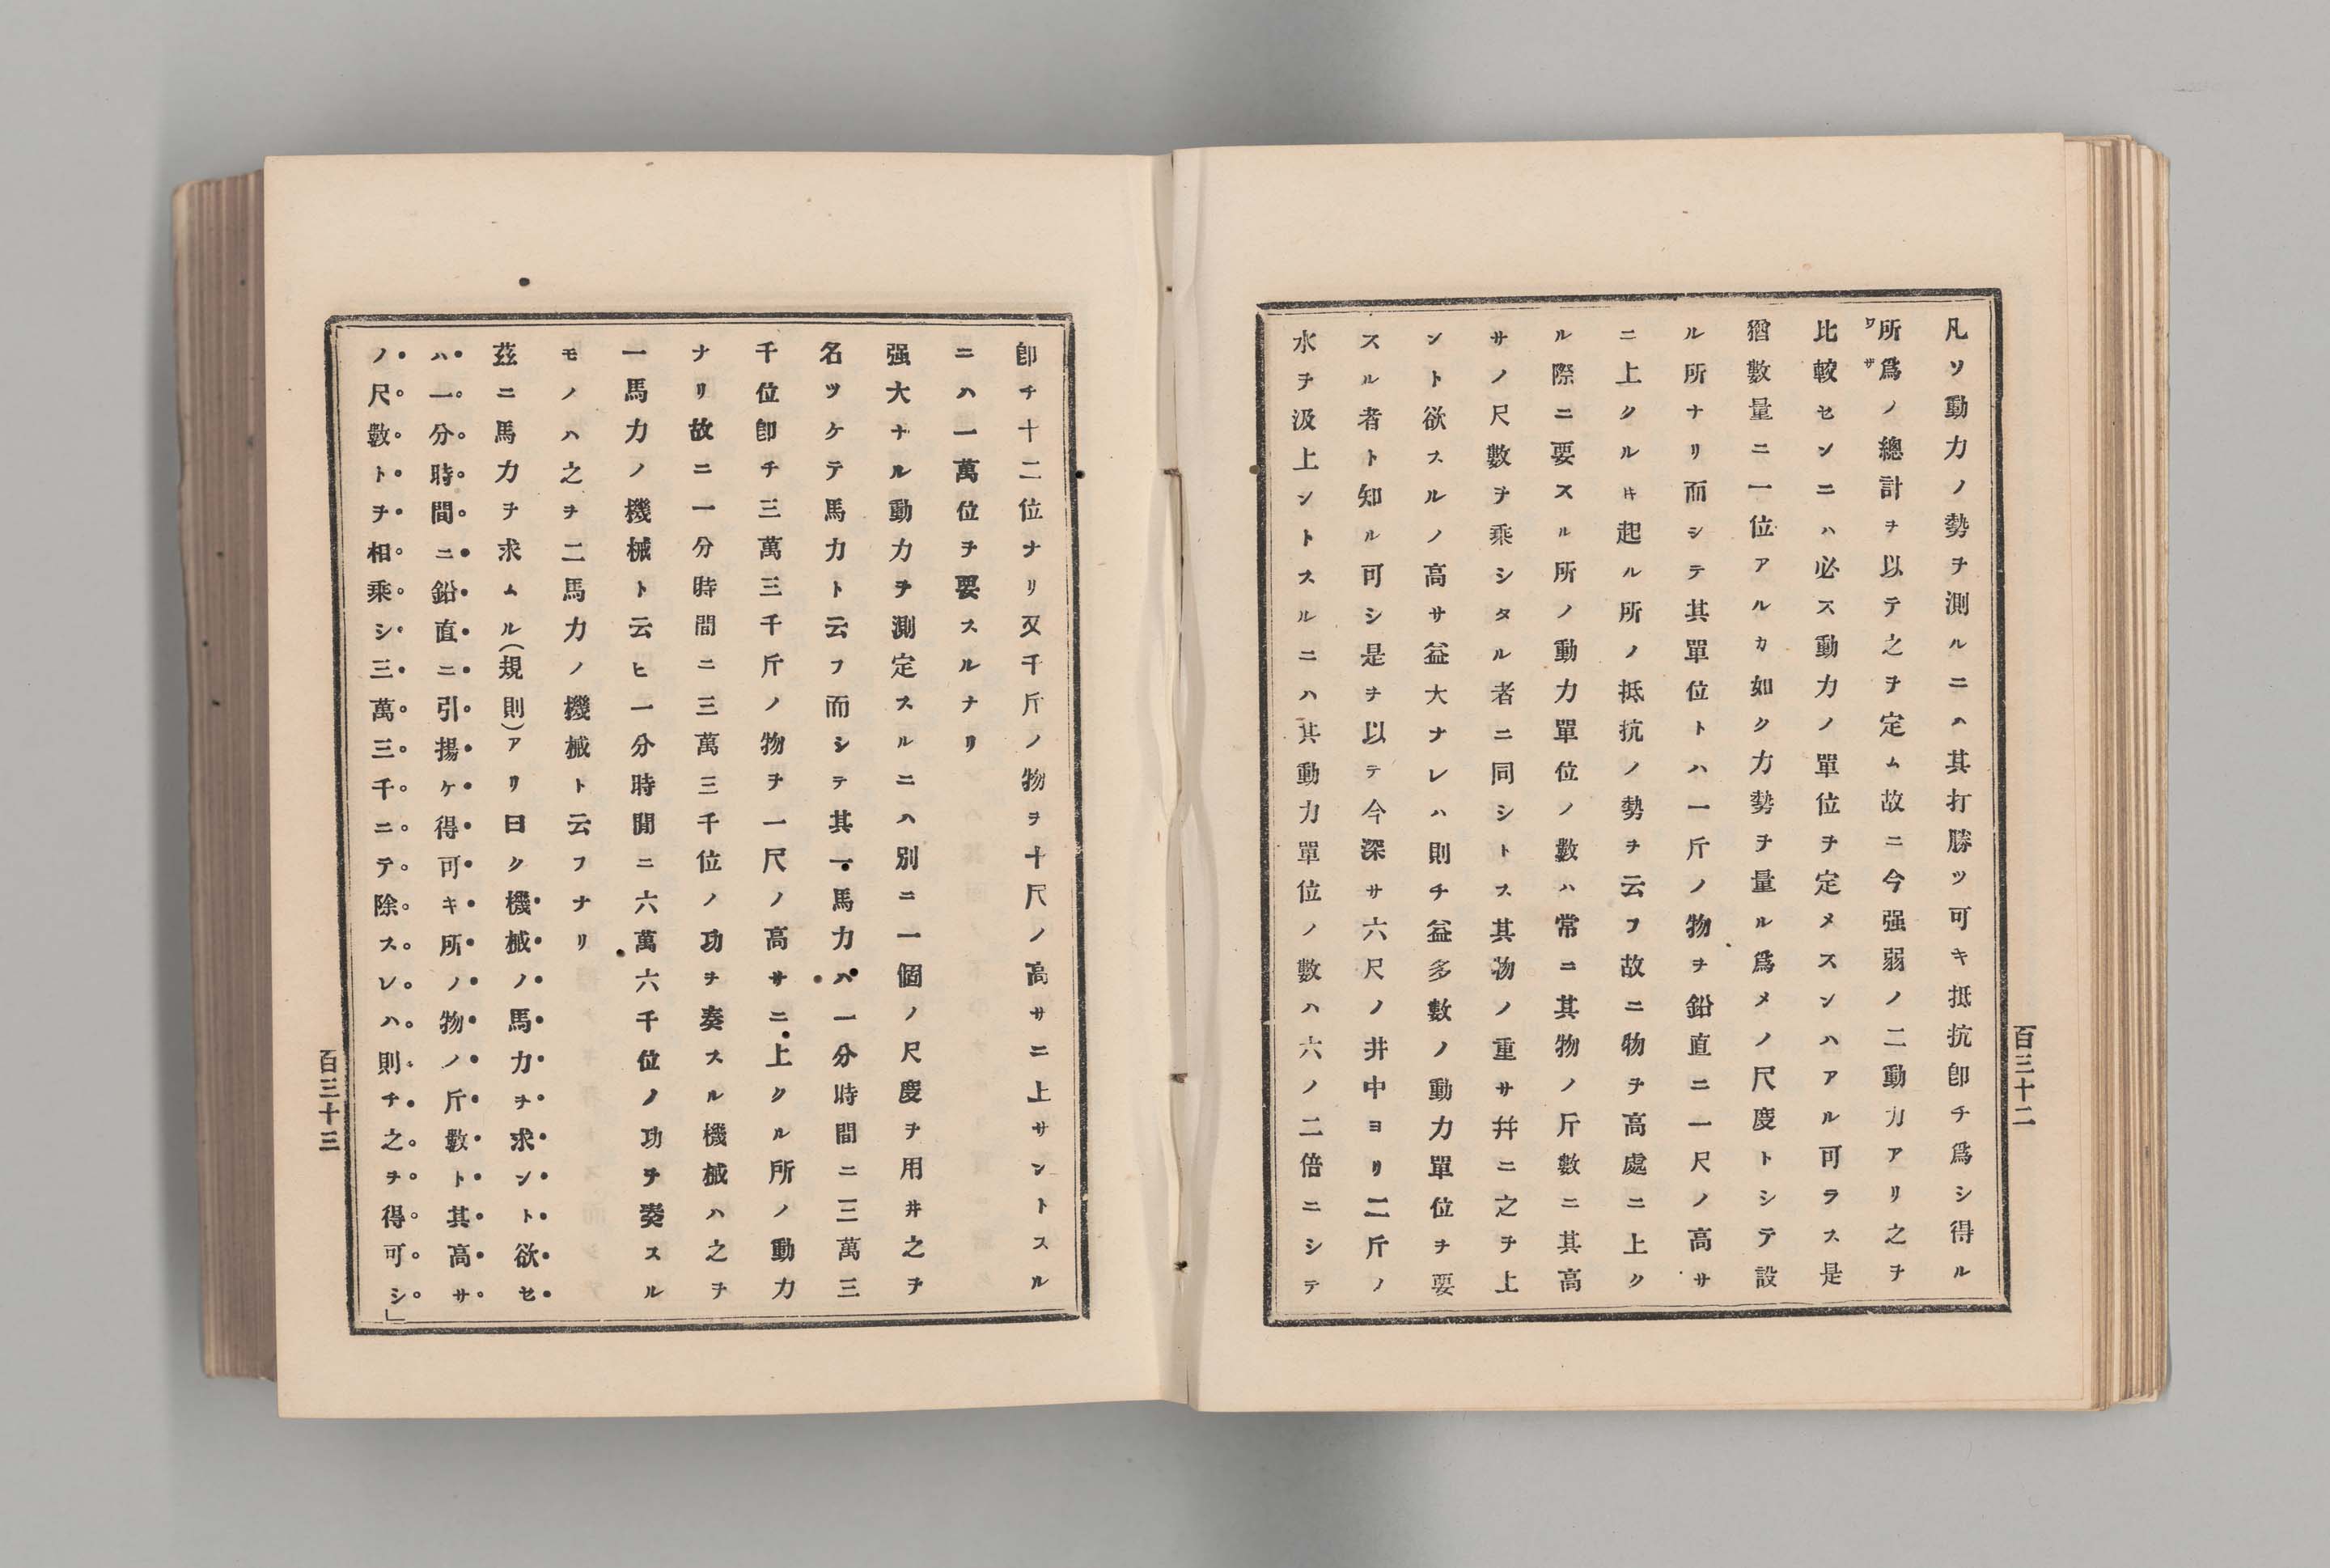 凡ソ動力ノ勢ヲ測ルニハ其打勝ツ可キ抵抗卽チ爲シ得ル
所爲ノ總計ヲ以テ之ヲ定ム故ニ今强弱ノ二動力アリ之ヲ
ワザ
比較センニハ必ス動力ノ單位ヲ定メスンハアル可ラス是
猶數量ニ一位アルカ如ク力勢ヲ量ル爲メノ尺度トシテ設
ル所ナリ而シテ其單位トハ一斤ノ物ヲ鉛直ニ一尺ノ高サ
ニ上クルキ起ル所ノ抵抗ノ勢ヲ云フ故ニ物ヲ高處ニ上ク
ル際ニ要スル所ノ動力單位ノ數ハ常ニ其物ノ斤數ニ其高
サノ尺數ヲ乘シタル者ニ同シトス其物ノ重サ幷ニ之ヲ上
ント欲スルノ高サ益大ナレハ則チ益多數ノ動力單位ヲ要
スル者ト知ル可シ是ヲ以テ今深サ六尺ノ井中ヨリ二斤ノ
水ヲ汲上ントスルニハ其動力單位ノ數ハ六ノ二倍ニシテ
百三十二
卽チ十二位ナリ又千斤ノ物ヲ十尺ノ高サニ上サントスル
ニハ一萬位ヲ要スルナリ
强大ナル動力ヲ測定スルニハ別ニ一個ノ尺度ヲ用井之ヲ
名ツケテ馬力ト云フ而シテ其一馬力ハ一分時間ニ三萬三
千位卽チ三萬三千斤ノ物ヲ一尺ノ高サニ上クル所ノ動力
ナリ故ニ一分時間ニ三萬三千位ノ功ヲ奏スル機械ハ之ヲ
一馬力ノ機械ト云ヒ一分時間ニ六萬六千位ノ功ヲ奏スル
モノハ之ヲ二馬力ノ機械ト云フナリ
茲ニ馬力ヲ求ムル(規則)アリ曰ク機械ノ馬力ヲ求ント欲セ
ハ一分時間ニ鉛直ニ引揚ケ得可キ所ノ物ノ斤數ト其高サ
ノ尺數トヲ相乘シ三萬三千ニテ除スレハ則チ之ヲ得可シ」
百三十三